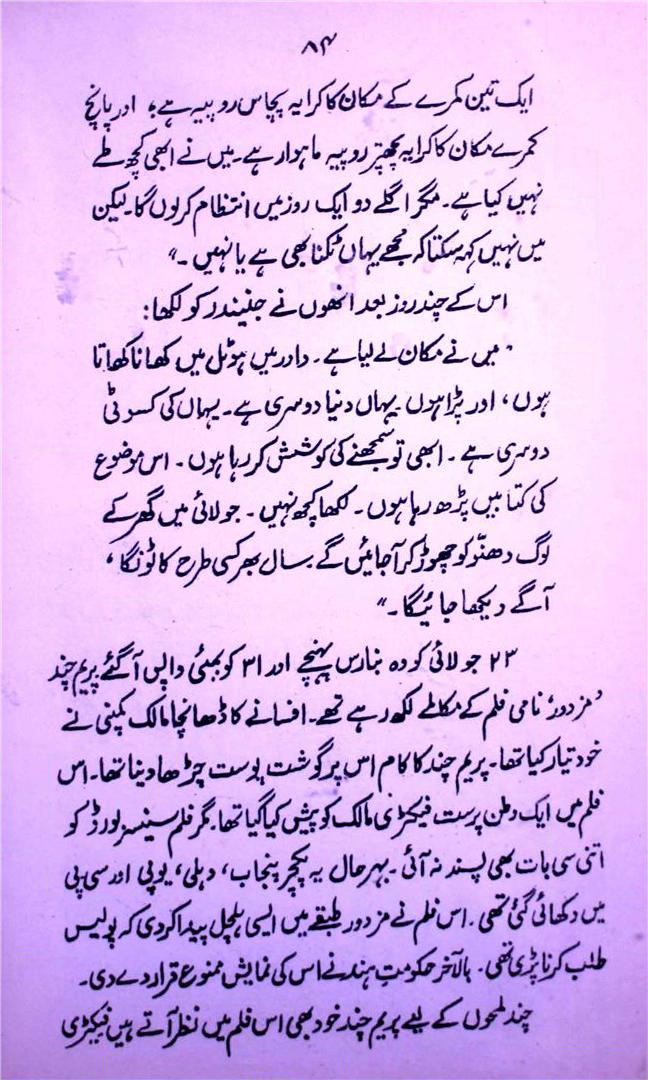 ۸۴
ایک تین کمرے کے مکان کا کرایہ پچاس روپیہ ہے، اور پانچ
کمرے مکان کا کرایہ پچھتر روپیہ ماہوار ہے۔ میں نے ابھی کچھ طے
نہیں کیا ہے۔ مگر اگلے دو ایک روز میں انتظام کرلوں گا۔ لیکن
میں نہیں کہہ سکتا کہ مجھے یہاں ٹکنا بھی ہے یا نہیں۔"
اس کے چند روز بعد انھوں نے جنیندر کو لکھا:
"میں نے مکان لے لیا ہے۔ دادر میں ہوٹل میں کھانا کھاتا
ہوں، اور پڑا ہوں۔ یہاں دنیا دوسری ہے۔ یہاں کی کسوٹی
دوسری ہے۔ ابھی تو سمجھنے کی کوشش کر رہا ہوں۔ اس موضوع
کی کتابیں پڑھ رہا ہوں۔ لکھا کچھ نہیں۔ جولائی میں گھر کے
لوگ دھنّو کو چھوڑ کر آجائیں گے۔ سال بھر کسی طرح کاٹونگا،
آگے دیکھا جائیگا۔"
۲۳ جولائی کو وہ بنارس پہنچے اور ۳۱ کو بمبئی واپس آگئے پریم چند
'مزدور' نامی فلم کے مکالمے لکھ رہے تھے۔ افسانے کا ڈھانچا مالک کمپنی نے
خود تیار کیا تھا۔ پریم چند کا کام اس پر گوشت پوست چڑھا دینا تھا۔ اس
فلم میں ایک وطن پرست فیکٹری مالک کو پیش کیا گیا تھا۔ مگر فلم سینسر بورڈ کو
اتنی سی بات بھی پسند نہ آئی۔ بہر حال یہ پکچر پنجاب، دہلی، یوپی اور سی پی
میں دکھائی گئی تھی۔ اس فلم نے مزدور طبقے میں ایسی ہلچل پیدا کردی کہ پولیس
طلب کرنا پڑی تھی۔ بالآخر حکومتِ ہند نے اس کی نمایش ممنوع قرار دے دی۔
چند لمحوں کے لیے پریم چند خود بھی اس فلم میں نظر آتے ہیں فیکٹری